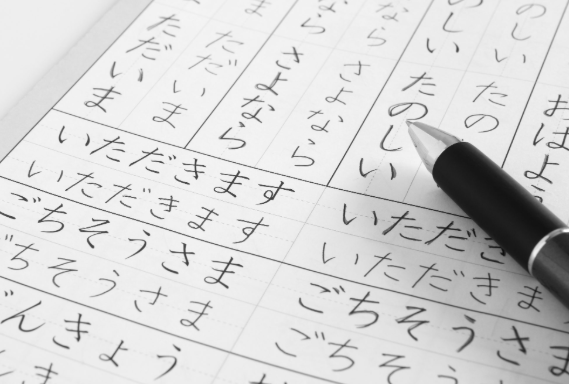 ただいま
ただいま
さよなら
なら
さよなら
のしい
たのしい
のしい
たの
おはよう
いただきます
いただきます
ごちそうさま
ごちそうさま
んきょう
いただき
いただきま
ごちそうさま
ごちそ